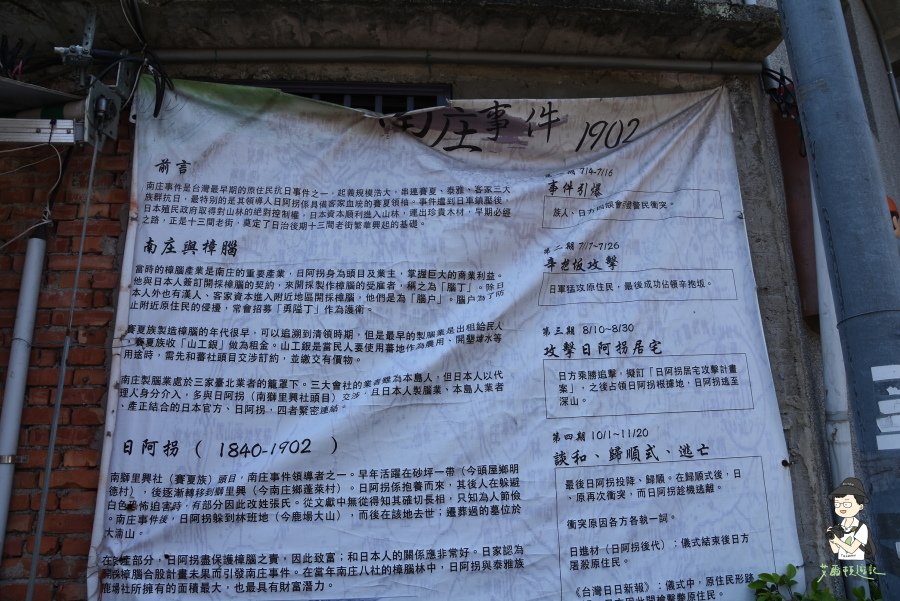 南庄事件 1902
前言
南庄事件是台灣最早期的原住民抗日事件之一，起義規模浩大，串連賽夏、泰雅、客家三大
族群抗日，最特別的是其領導人日阿拐係具備客家血統的賽夏領袖。事件遭到日軍鎮壓後，
日本殖民政府取得對山林的絕對控制權，日本資本順利進入山林，運出珍貴木材，早期必經
之路，正是十三間老街，奠定了日治後期十三間老街繁華興起的基礎。
南庄與樟腦
當時的樟腦產業是南庄的重要產業，日阿拐身為頭目及業主，掌握巨大的商業利益。
他與日本人簽訂開採樟腦的契約，來開採製作樟腦的受雇者，稱之為「腦丁」。除日
本人外也有漢人、客家資本進入附近地區開採樟腦，他們是為「腦户」。腦户為了防
止附近原住民的侵擾，常會招募「勇隘丁」作為護衛。
賽夏族製造樟腦的年代很早，可以追溯到清領時期，但是最早的製腦業是出租給民人
，賽夏族收「山工銀」做為租金。山工銀是當民人要使用蕃地作為農用、開墾埤水等
用途時，需先和蕃社頭目交涉訂約，並繳交有價物。
南庄製腦業處於三家臺北業者的籠罩下。三大會社的業者雖為本島人，但日本人以代
理人身分介入，多與日阿拐（南獅里興社頭目）交涉，且日本人製腦業、本島人業者
、產正結合的日本官方、日阿拐，四者緊密連結。
日阿拐 ( 1840-1902 )
南獅里興社（賽夏族）頭目，南庄事件領導者之一。早年活躍在砂坪一帶（今頭屋鄉明
德村），後逐漸轉移到獅里興（今南庄鄉蓬萊村）。日阿拐係抱養而來，其後人在躲避
白色恐怖迫害時，有部分因此改姓張氏。從文獻中無從得知其確切長相，只知為人節儉
。南庄事件後，日阿拐躲到林班地（今鹿場大山），而後在該地去世；遷葬過的墓位於
大湳山。
在資產部分，日阿拐盡保護樟腦之責，因此致富；和日本人的關係應非常好。日家認為
樟腦合股計畫未果而引發南庄事件。在當年南庄八社的樟腦林中，日阿拐與泰雅族
鹿場社所擁有的面積最大，也最具有財富潛力。
期 7/4-7/16
事件引爆
族人、日方與隘會灣警民衝突。
第二期 7/17~7/26
辛抱坂攻擊
日軍猛攻原住民，最後成功佔領辛抱坂。
第三期 8/10~8/30
攻擊日阿拐居宅
日方乘勝追擊，擬訂「日阿拐居宅攻擊計畫
案」，之後占領日阿拐根據地，日阿拐逃至
深山。
第四期 10/1~11/20
談和、歸順式、逃亡
最後日阿拐投降、歸順。在歸順式後，日
、原再次衝突，而日阿拐趁機逃離。
衝突原因各方各執一詞。
日進材（日阿拐後代）：儀式結束後日方
屠殺原住民。
《台灣日日新報》：儀式中，原住民形跡
艾爾頓遊記